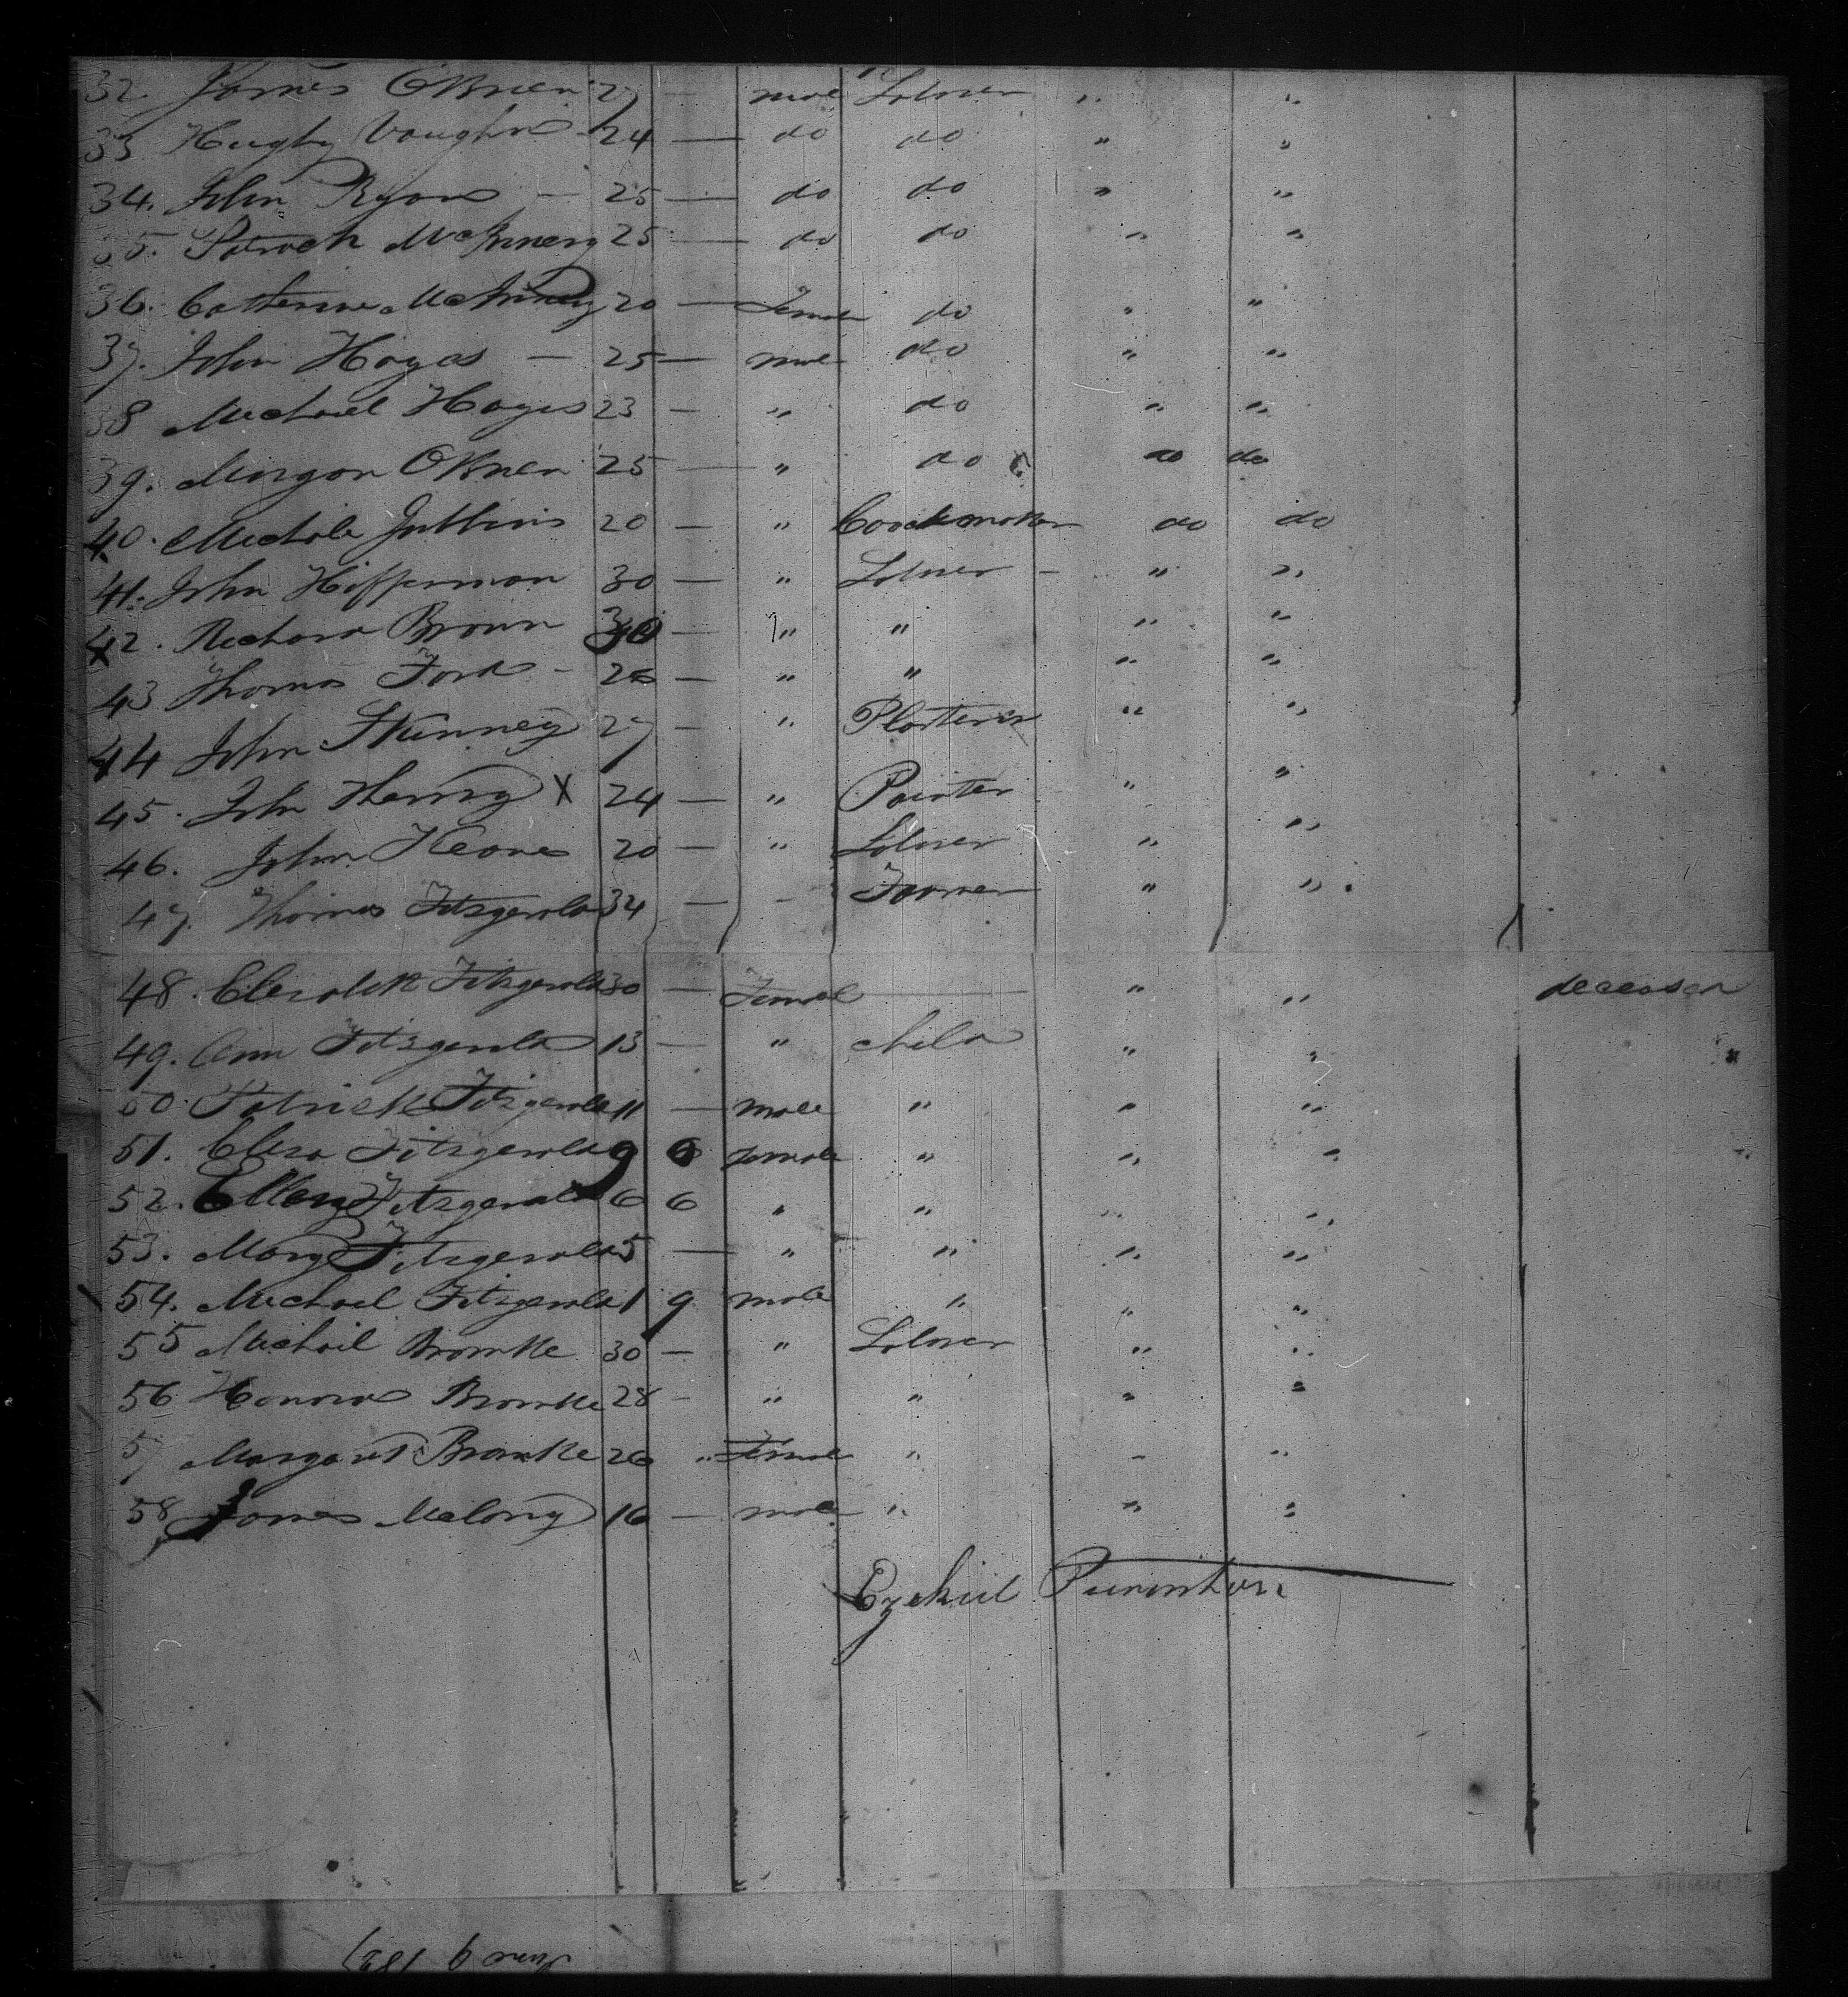 32. James OBrien 27 — male Labourer " "
33 Hughy Vaughn - 24 — do do " "
34. John Ryan — 25 — do do " "
35. Patrick McInnery 25 — do do " "
36. Catherine McInnery 20 — Female do " "
37. John Hayes — 25 — male do " "
38 Michael Hayes 23 — " do " "
39. Morgan OBrien 25 — " do do do
40. Michale 20 — " Coachmaker do do
41. John Hiffernan 30 — " Labourer - " "
42. Richard Brown 30 — " " " "
43 Thomas Ford - 26 — " " " "
44 John Kinney 27 — " Plasterer " "
45. John Henry X 24 — " Painter " "
46. John Keane 20 — " Labourer " "
47. Thomas Fitzgerald 34 — - Farmer " "
48. Elizabeth Fitzgerald 30 — Female — " " deceased
49. Ann Fitzgerald 13 — " child " "
50. Patrick Fitzgerald 11 — male " " "
51. Eliza Fitzgerald 9 6 Female " " "
52. Ellen Fitzgerald 6 6 " " " "
53. Mary Fitzgerald 5 — " " " "
54. Michael Fitzgerald 1 9 male " " "
55 Michail Bromke 30 — " Labourer " "
56 Honora Bromke 28 - " " " "
57 Margaret Bromke 26 " Female " - "
58 James Melony 16 — male " " "
Ezekiel Purinton
June 9 1837